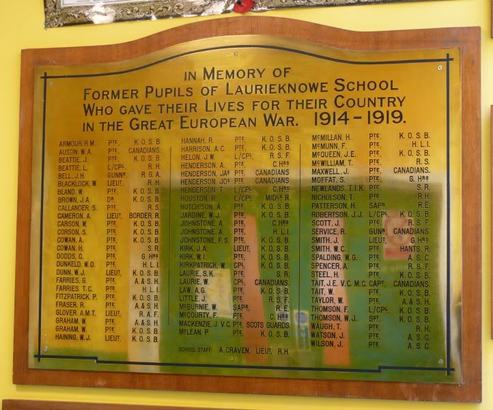 IN MEMORY OF
FORMER PUPILS OF LAURIEKNOWE SCHOOL
WHO GAVE THEIR LIVES FOR THEIR COUNTRY
IN THE GREAT EUROPEAN WAR. 1914-1919.
ARMOUR, R.M. PTE. K.O.S.B.
AUSTIN, W.A. PTE. CANADIANS.
BEATTIE, J. PTE. K.O.S.B.
BEATTIE, L. L/CPL. R.H.
BELL, J.H. GUNNR. R.G.A.
BLACKLOCK, W. LIEUT. R.H.
BLAND, W. PTE. K.O.S.B.
BROWN, J.A. K.O.S.B.
CALLANDER, S. PTE. R.S.
CAMERON, A. LIEUT. BORDER R.
CARSON, W. PTE. K.O.S.B.
CORSON, S. PTE. K.O.S.B.
COWAN, A. PTE. K.O.S.B.
COWAN, H. PTE. S.R.
DODDS, C. PTE. G. HRS
DUNKELD, W.O. PTE. H.L.I.
DUNN, W.J. LIEUT. K.O.S.B.
FARRIES, G. PTE. A & S.H.
FARRIES, T.C. PTE. H.L.I.
FITZPATRICK, P. PTE. K.O.S.B.
FRASER, R. PTE. A & S.H.
GLOVER, A.M.T. LIEUT. R.A.F.
GRAHAM, W. PTE. A & S.H.
GRAHAM, W. PTE. K.O.S.B.
HAINING, W.J. LIEUT. K.O.S.B.
HANNAH, R. PTE. K.O.S.B.
HARRISON, A.C. PTE. K.O.S.B.
HELON, J.W. L/CPL. R.S.F.
HENDERSON, A. PTE. C. HRS
HENDERSON, JAS PTE. CANADIANS
HENDERSON, JOHN PTE. CANADIANS
HENDERSON, T. L/CPL. C. HRS
HOUSTON, R. L/CPL. R.
HUTCHISON, A. PTE. K.O.S.B.
JARDINE, W.J. PTE. K.O.S.B.
JOHNSTONE, A. PTE. C. HRS
JOHNSTONE, J. PTE. H.L.I.
JOHNSTONE, F.S. PTE. K.O.S.B.
KIRK, J.A. LIEUT. K.O.S.B.
KIRK, W.I. PTE. K.O.S.B.
KIRKPATRICK, W. CPL. K.O.S.B.
LAURIE, S.K. PTE. S.R.
LAURIE, W. CPL. CANADIANS.
LAW, A.G. PTE. K.O.S.B.
LITTLE, J. PTE. R.S.F.
McBURNIE, W. SAPR. R.E.
McCOURTY, F. PTE. C. HRS
MACKENZIE, J.V.C. PTE. SCOTS GUARDS
McLEAN, P. PTE. K.O.S.B.
SCHOOL STAFF A. CRAVEN, LIEUT. R.H.
McMILLAN, H. PTE. K.O.S.B.
McMUNN, F. PTE. H.L.I.
McQUEEN, J.E. PTE. K.O.S.B.
McWILLIAM, T. PTE. R.S.
MAXWELL, J. PTE. CANADIANS.
MOFFAT, S. PTE. K.O.S.B.
NEWLANDS, T.I.K. PTE. S.R.
NICHOLSON, T. PTE. R.H.
PATTERSON, H. SAPR. R.E.
ROBERTSON, J.J. L/CPL. K.O.S.B.
SCOTT, J. PTE. R.S.F.
SERVICE, R. GUNR. CANADIANS
SMITH, J. LIEUT. G. HRS
SMITH, W.C. PTE. HANTS. R.
SPALDING, W.G. PTE. A.S.C.
SPENCER, A. PTE. R.S.F.
STEEL, H. PTE. K.O.S.B.
TAIT, J.E. V.C. M.C. CAPT. CANADIANS.
TAIT, W. PTE. K.O.S.B.
TAYLOR, W. PTE. A & S.H.
THOMSON, F. L/CPL. K.O.S.B.
THOMSON, W.J. SGT. K.O.S.B.
WAUGH, T. PTE. R.H.
WATSON, J. PTE. A.S.C.
WILSON, J. PTE. A.S.C.